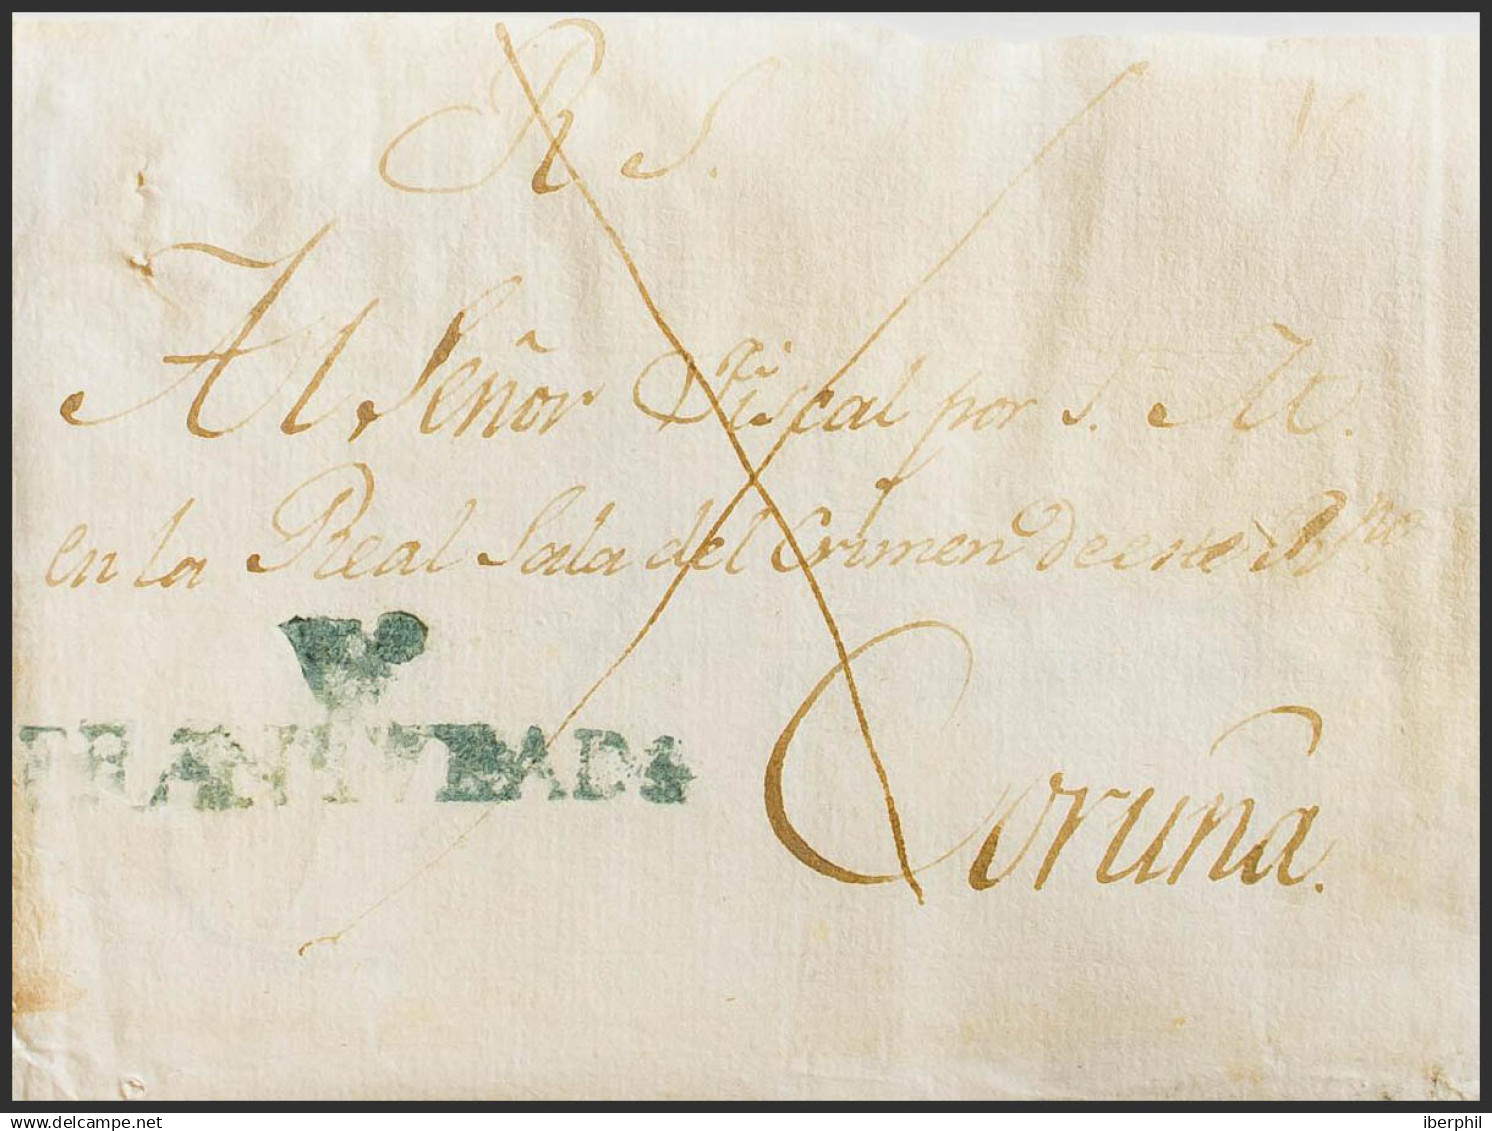 R S.
Al Señor Fiscal por S. M.
en la Real Sala del Crimen de este Rno.
FRANQUEADO
Coruña.
www.delcampe.net
iberphil